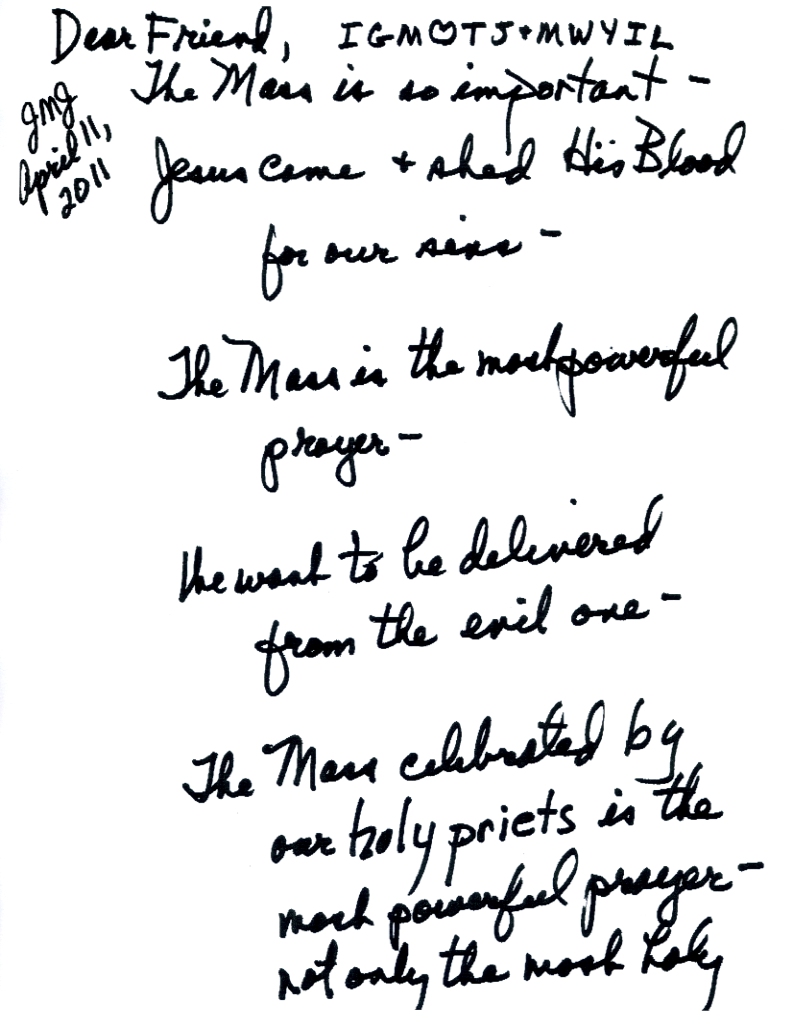 Dear Friend, IGM♡TJ+MWYIL
JMJ
April 11,
2011
The Mass is so important –
Jesus came + shed His Blood
for our sins –
The Mass is the most powerful
prayer –
We want to be delivered
from the evil one –
The Mass celebrated by
our holy priets is the
most powerful prayer –
not only the most holy